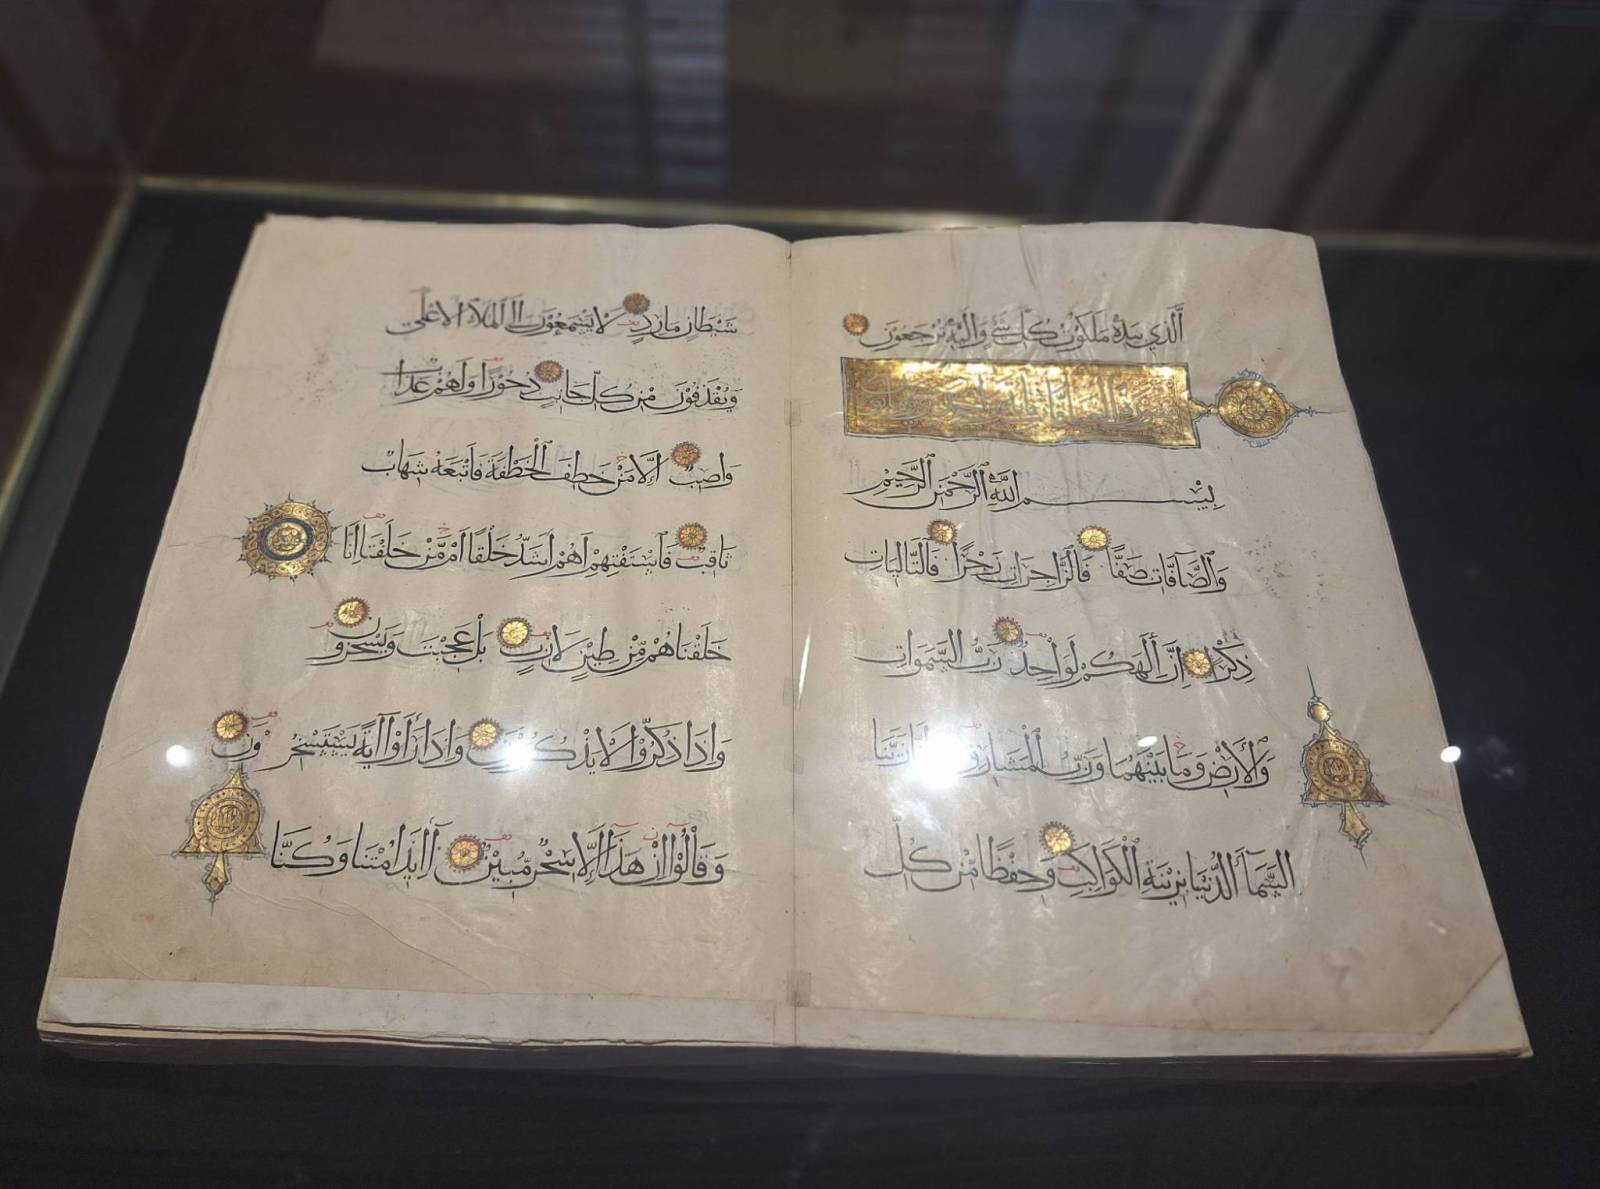 ٱلَّذِي بِيَدِهِ مَلَكُوتُ كُلِّ شَيْءٍ وَإِلَيْهِ تُرْجَعُونَ
بِسْمِ ٱللَّهِ ٱلرَّحْمَٰنِ ٱلرَّحِيمِ
وَٱلصَّافَّاتِ صَفًّا فَٱلزَّاجِرَاتِ زَجْرًا فَٱلتَّالِيَاتِ
ذِكْرًا إِنَّ إِلَٰهَكُمْ لَوَاحِدٌ رَبُّ السَّمَوَاتِ
وَٱلْأَرْضِ وَمَا بَيْنَهُمَا وَرَبُّ ٱلْمَشَارِقِ إِنَّا زَيَّنَّا
السَّمَاءَ الدُّنْيَا بِزِينَةٍ ٱلْكَوَاكِبِ وَحِفْظًا مِّنْ كُلِّ
شَيْطَانٍ مَارِدٍ لَا يَسَّمَّعُونَ إِلَى ٱلْمَلَإِ ٱلْأَعْلَى
وَيُقْذَفُونَ مِنْ كُلِّ جَانِبٍ دُحُورًا وَلَهُمْ عَذَابٌ
وَاصِبٌ إِلَّا مَنْ خَطِفَ ٱلْخَطْفَةَ فَأَتْبَعَهُ شِهَابٌ
ثَاقِبٌ فَٱسْتَفْتِهِمْ أَهُمْ أَشَدُّ خَلْقًا أَمْ مَّنْ خَلَقْنَا إِنَّا
خَلَقْنَاهُمْ مِّنْ طِينٍ لَازِبٍ بَلْ عَجِبْتَ وَيَسْخَرُونَ
وَإِذَا ذُكِّرُوا لَا يَذْكُرُونَ وَإِذَا رَأَوْا آيَةً يَسْتَسْخِرُونَ
وَقَالُوا إِنْ هَٰذَا إِلَّا سِحْرٌ مُّبِينٌ أَإِذَا مِتْنَا وَكُنَّا